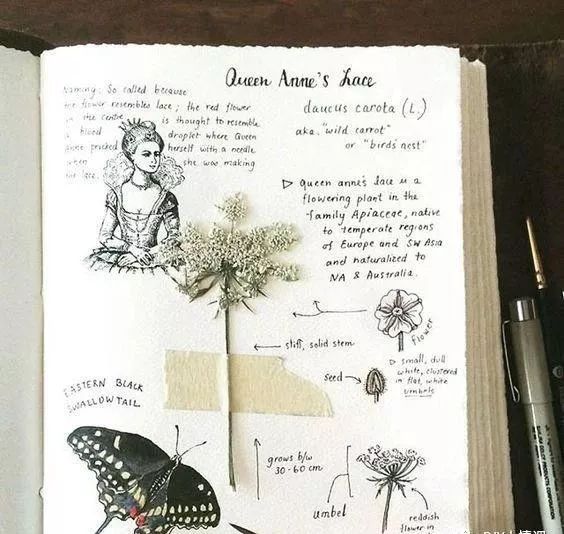 Queen Anne's Lace
Naming: So called because
the flower resembles lace; the red flower
in the centre is thought to resemble
a blood droplet where Queen
Anne pricked herself with a needle
when she was making
the lace.
daucus carota (L.)
aka. "wild carrot"
or "birds' nest"
queen anne's lace is a
flowering plant in the
family Apiaceae, native
to temperate regions
of Europe and SW Asia
and naturalized to
NA & Australia.
flower
stiff, solid stem
small, dull
white, clustered
in flat, white
umbels
seed
EASTERN BLACK
SWALLOWTAIL
grows b/w
30-60 cm
umbel
reddish
flower in